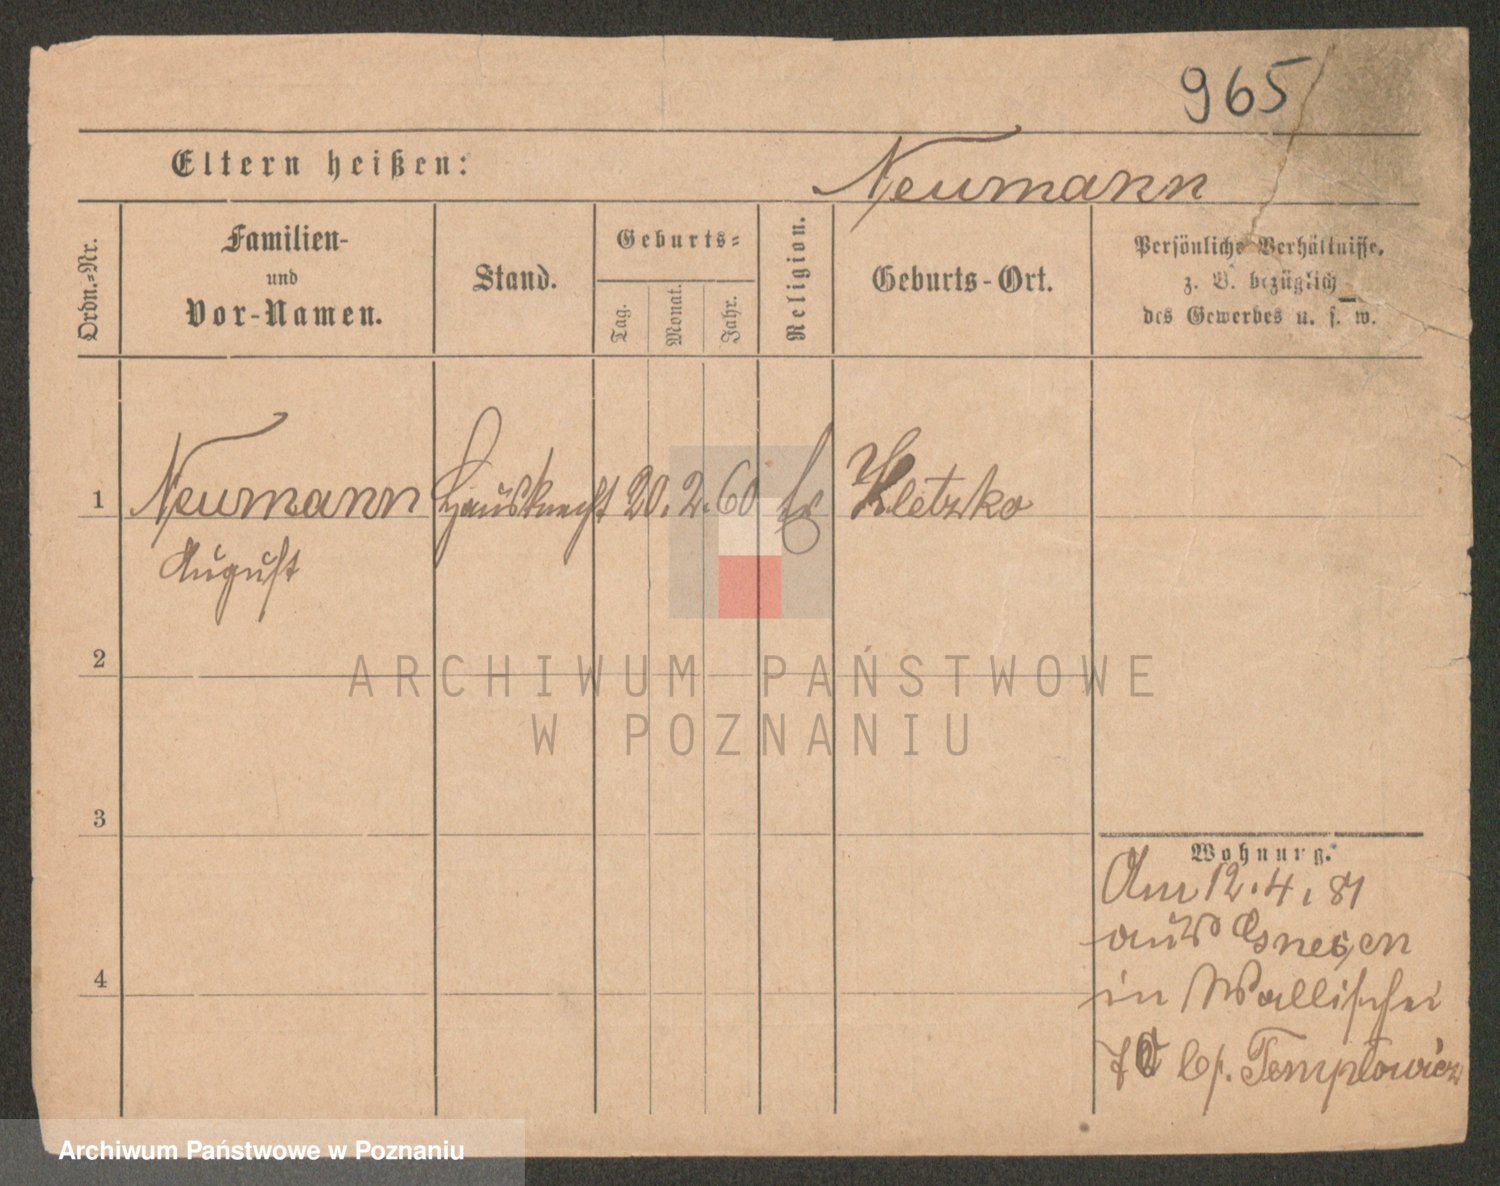 965
Eltern heißen:
Neumann
Ordn.-Nr.
Familien-
und
Vor-Namen.
Stand.
Geburts-
Tag.
Monat.
Jahr.
Religion.
Geburts-Ort.
Persönliche Verhältnisse,
z. B. bezüglich
des Gewerbes u. s. w.
1
Neumann Hausknecht 20. 2. 60 Kletzko
August
2
3
4
Wohnung.
Am 12. 4. 81
aus Gnesen
in Wallischei
b/. Templowicz
ARCHIWUM PAŃSTWOWE
W POZNANIU
Archiwum Państwowe w Poznaniu